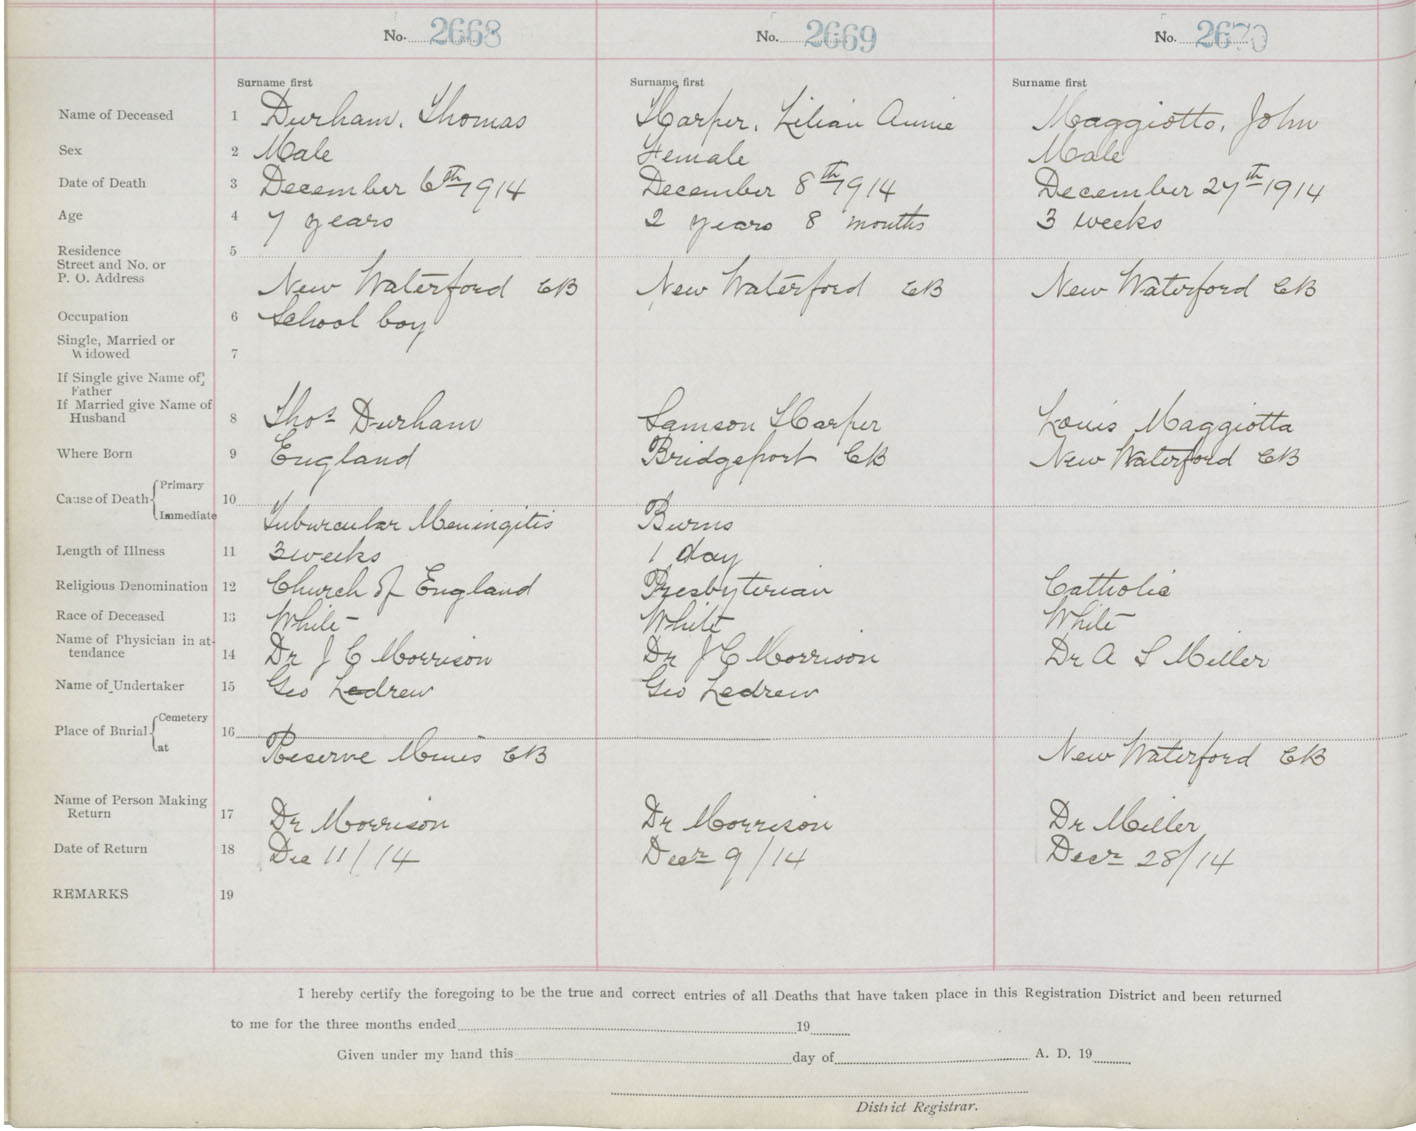 No. 2668 No. 2669 No. 2670
Surname first Surname first Surname first
Name of Deceased 1 Durham, Thomas Harper, Lilian Annie Maggiotto, John
Sex 2 Male Female Male
Date of Death 3 December 6th 1914 December 8th 1914 December 27th 1914
Age 4 7 years 2 years 8 months 3 weeks
Residence 5
Street and No. or
P. O. Address
New Waterford CB New Waterford CB New Waterford CB
Occupation 6 School boy
Single, Married or
Widowed 7
If Single give Name of
Father
If Married give Name of
Husband 8 Thos Durham Samson Harper Louis Maggiotta
Where Born 9 England Bridgeport CB New Waterford CB
Cause of Death { Primary 10
Immediate Tuburcular Meningitis Burns
Length of Illness 11 3 weeks 1 day
Religious Denomination 12 Church of England Presbyterian Catholic
Race of Deceased 13 White White White
Name of Physician in at-
tendance 14 Dr J C Morrison Dr J C Morrison Dr A S Miller
Name of Undertaker 15 Geo Ledrew Geo Ledrew
Place of Burial { Cemetery 16
at Reserve Mines CB New Waterford CB
Name of Person Making
Return 17 Dr Morrison Dr Morrison Dr Miller
Date of Return 18 Dec 11/14 Decr 9/14 Decr 28/14
REMARKS 19
I hereby certify the foregoing to be the true and correct entries of all Deaths that have taken place in this Registration District and been returned
to me for the three months ended 19
Given under my hand this day of A. D. 19
District Registrar.